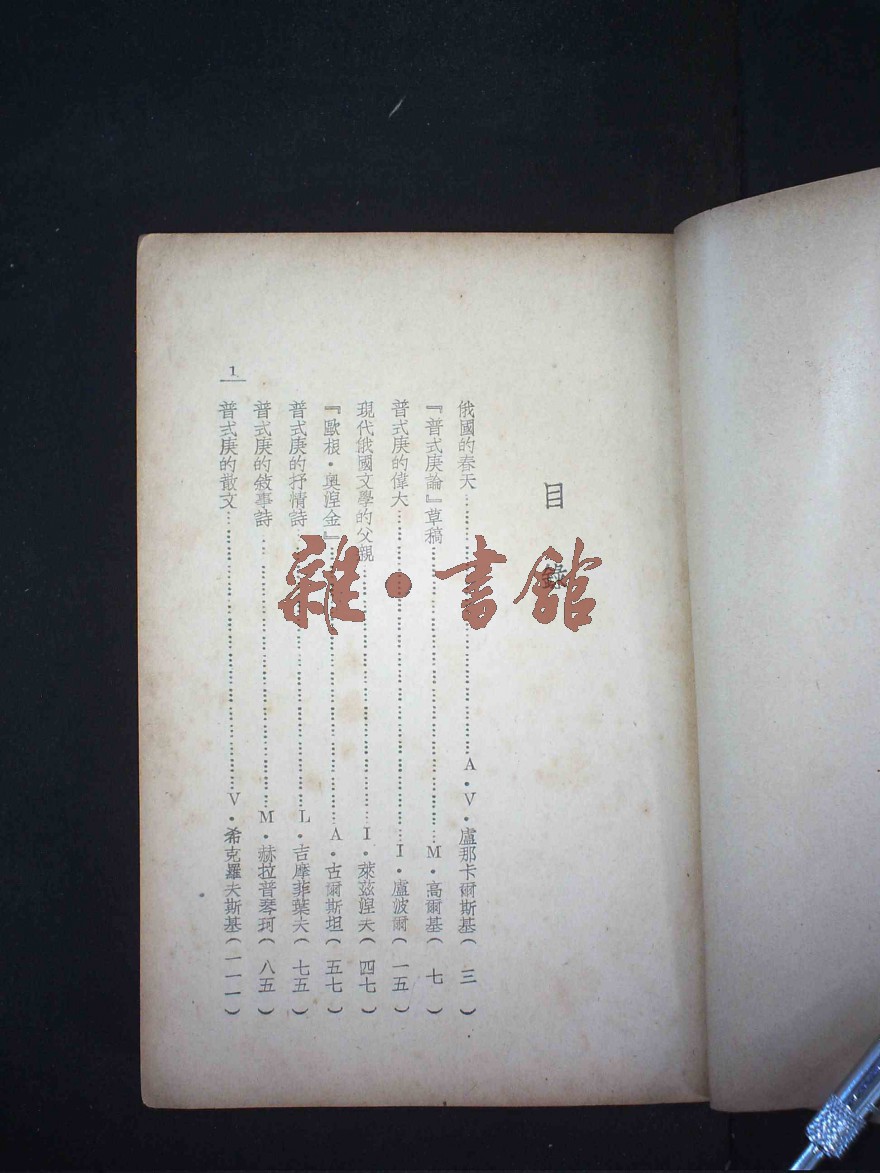 目錄
俄國的春天……A·V·盧那卡爾斯基(三)
『普式庚論』草稿……M·高爾基(七)
普式庚的偉大……I·盧波爾(一五)
現代俄國文學的父親……I·萊茲涅夫(四七)
『歐根·奧涅金』……A·古爾斯坦(五七)
普式庚的抒情詩……L·吉摩菲葉夫(七五)
普式庚的敘事詩……M·赫拉普琴珂(八五)
普式庚的散文……V·希克羅夫斯基(一一一)
1
雜·書館